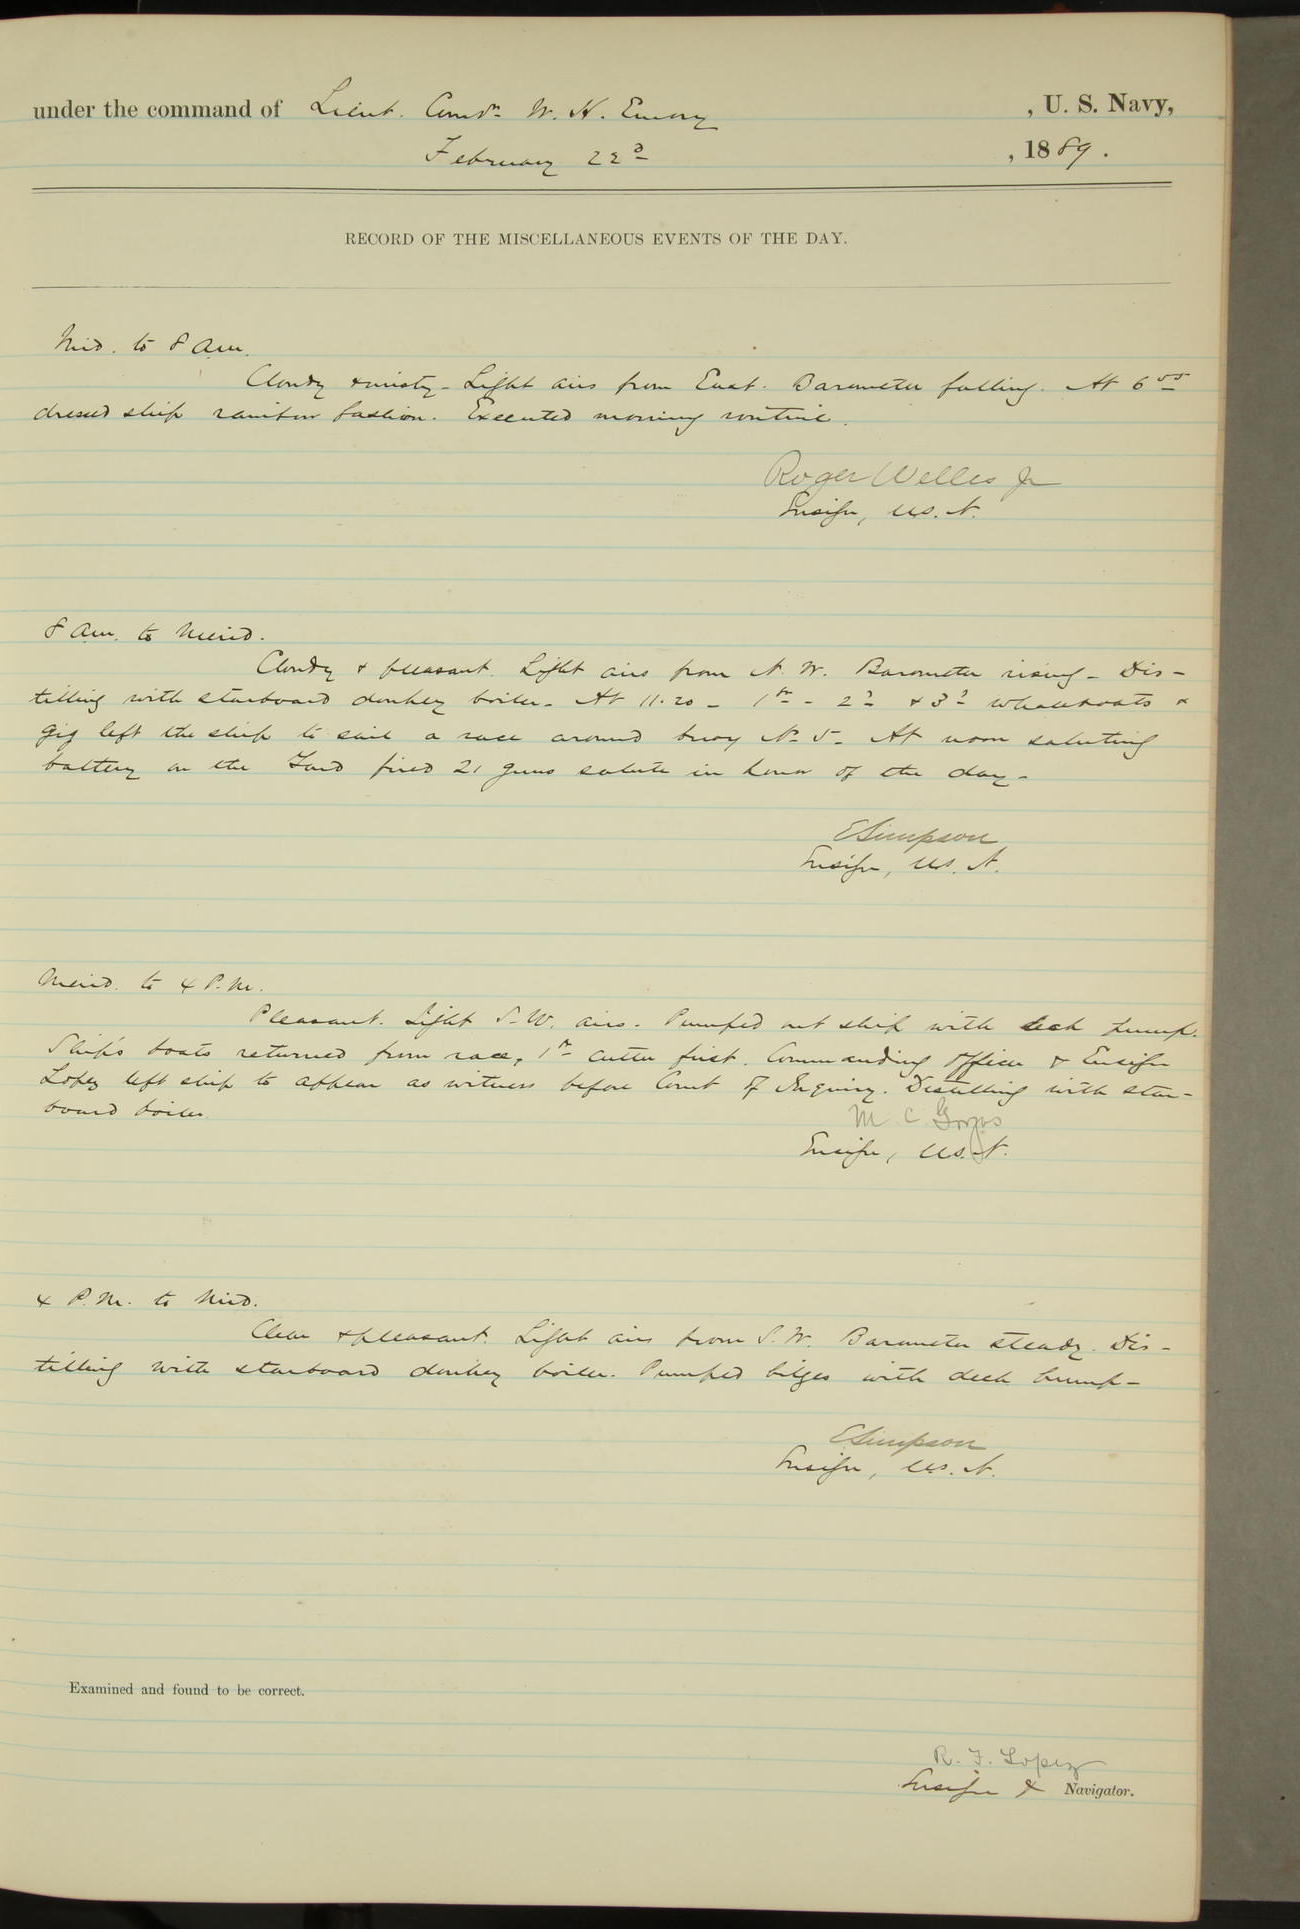 under the command of Lieut. Comdr. W. H. Emory, U. S. Navy,
February 22d, 1889.
RECORD OF THE MISCELLANEOUS EVENTS OF THE DAY.
Mid. to 8 a.m.
Cloudy & misty - Light airs from East. Barometer falling. At 6 55
dressed ship rainbow fashion. Executed morning routine.
Roger Welles Jr
Ensign, U.S.N.
8 a.m. to Merid.
Cloudy & pleasant. Light airs from N. W. Barometer rising - Dis-
tilling with starboard donkey boiler - At 11.20 - 1st - 2d & 3d whaleboats &
gig left the ship to sail a race around buoy No 5 - At noon saluting
battery on the fired 21 guns salute in honor of the day -
E Simpson
Ensign, U.S.N.
Merid. to 4 P.M.
Pleasant. Light S-W. airs. Pumped out ship with deck pump.
Ship's boats returned from race, 1st cutter first. Commanding Officer & Ensign
Lopez left ship to appear as witness before Court of Inquiry. Distilling with star-
board boiler.
M C Gorgas
Ensign, U.S.N.
4 P.M. to Mid.
Clear & pleasant. Light airs from S. W. Barometer steady. Dis-
tilling with starboard donkey boiler. Pumped bilges with deck pump -
E Simpson
Ensign, U.S.N.
Examined and found to be correct.
R. F. Lopez
Ensign & Navigator.